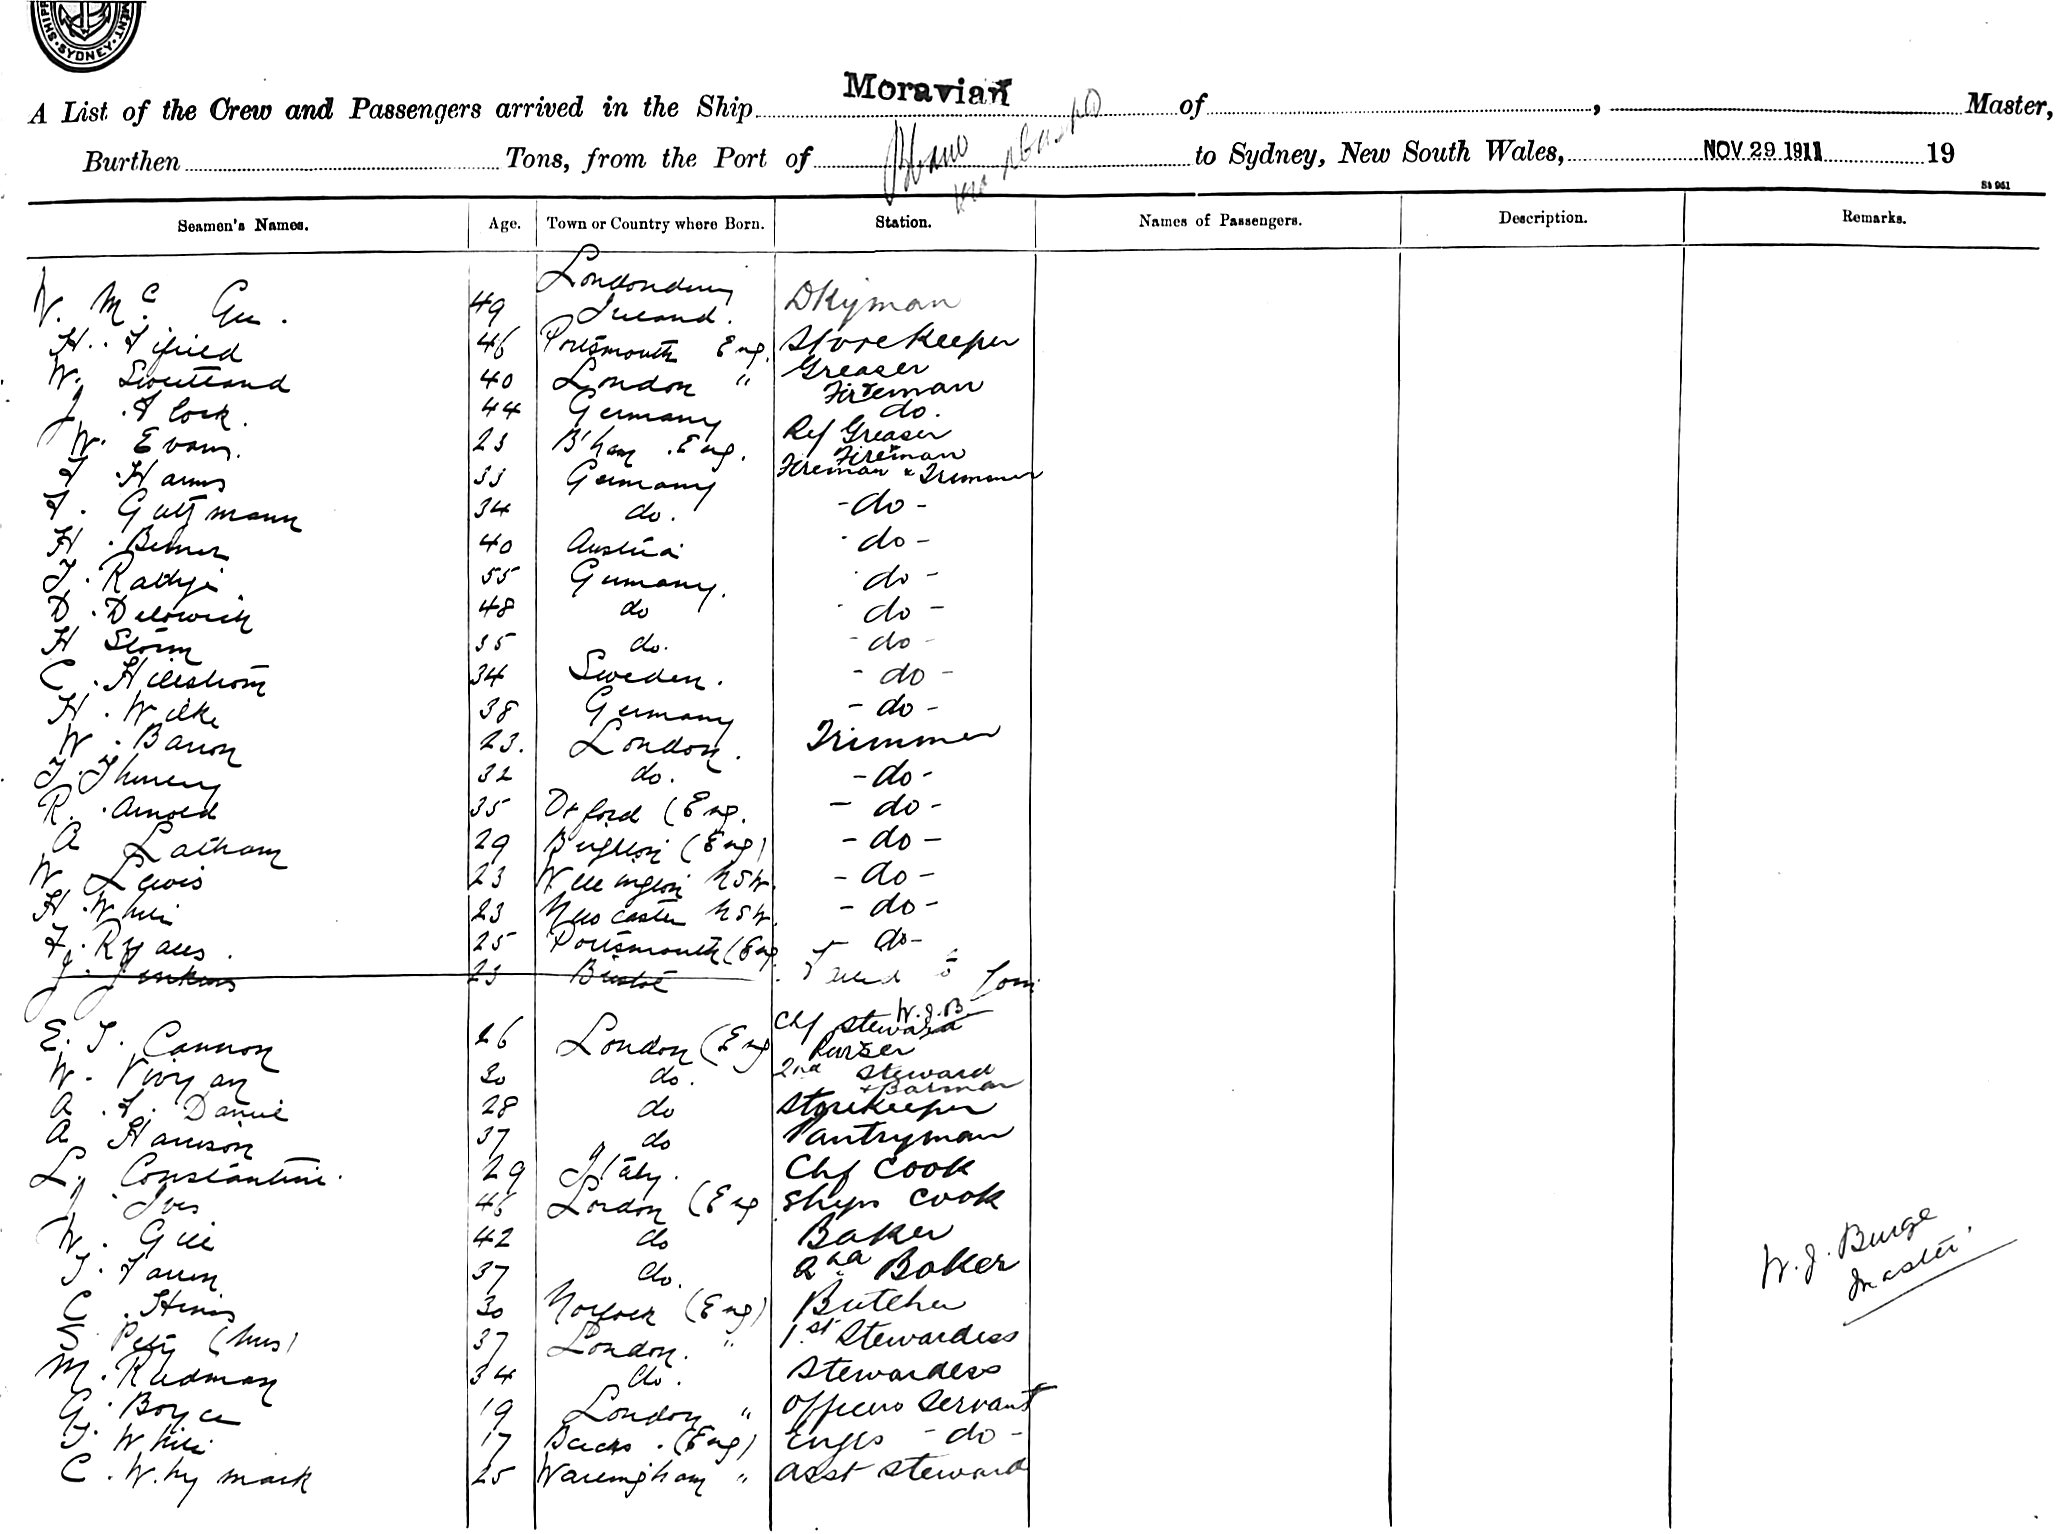 SHIPP MENT SYDNEY
Moravian
A List of the Crew and Passengers arrived in the Ship of , Master,
Burthen Tons, from the Port of to Sydney, New South Wales, NOV 29 1911 19
St 961
Seamen's Names. Age. Town or Country where Born. Station. Names of Passengers. Description. Remarks.
Londonderry
W. McGee. 49 Ireland. Dkyman
H. Fifield 46 Portsmouth Eng. Storekeeper
W. Sweetland 40 London " Greaser
Fireman
J. Flock. 44 Germany do.
W. Evans. 23 B'ham. Eng. Ref Greaser
Fireman
F. Harms 33 Germany Fireman & Trimmer
F. Guttmann 34 do. - do -
H. 40 Austria do -
J. Rathje 55 Germany. do -
D. 48 do do -
H Storm 35 do. - do -
C. Hillstrom 34 Sweden. - do -
H. Wilke 38 Germany - do -
W. Baron 23. London. Trimmer
32 do. - do -
R. Arnold 35 (Eng. - do -
A Latham 29 Brighton (Eng) - do -
W Lewis 23 Wellington NSW. - do -
H. White 23 Newcastle NSW. - do -
F. 25 Portsmouth (Eng - do -
J. Jenkins 23 Bristol Failed to Join
W.J.B
E. J. Cannon 26 London (Eng Chf Steward
Purser
W. Vivyan 30 do. 2nd Steward
+ Barman
A. F. Daniel 28 do Storekeeper
A Harrison 37 do Pantryman
L. Constantini. 29 Italy. Chf Cook
J. Ives 46 London (Eng Ships Cook
W. Gill 42 do Baker
37 do. 2nd Baker
C. 30 Norfolk (Eng) Butcher
S. Petty (Mrs) 37 London. " 1st Stewardess
M. Redman 34 do. Stewardess
G. Boyce 19 London " Officers Servant
J. White 17 Bucks. (Eng) Engrs - do -
C. Whymark 25 Warlingham " Asst Steward
W. J. Burge
Master.